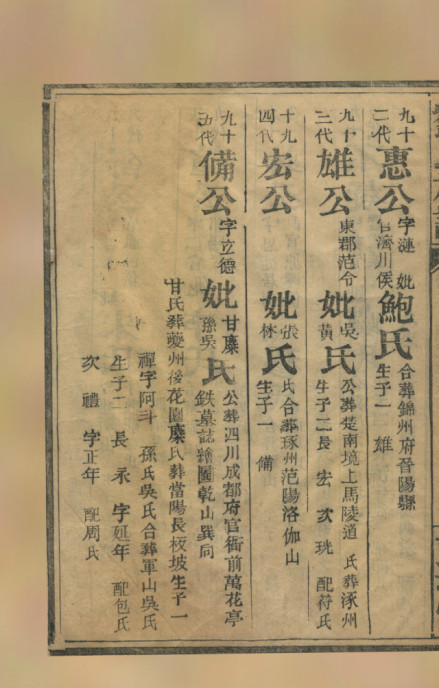 九十二代惠公字漣官濟川侯
妣鮑氏合葬錦州府晉陽縣生子一 雄
九十三代雄公東郡范令
妣吳黃氏公葬楚南境上馬陵道 氏葬涿州生子二長 宏 次 珖 配符氏
九十四代宏公
妣張林氏氏合葬琢州范陽洛伽山生子一 備
九十五代備公字立德
妣甘糜孫吳氏公葬四川成都府官衙前萬花亭鉄墓誌繪圖乾山巽向
甘氏葬夔州後花園糜氏葬當陽長板坡生子一
禪字阿斗 孫氏吳氏合葬軍山吳氏
生子二 長 永 字延年 配包氏
次 禮 字正年 配周氏